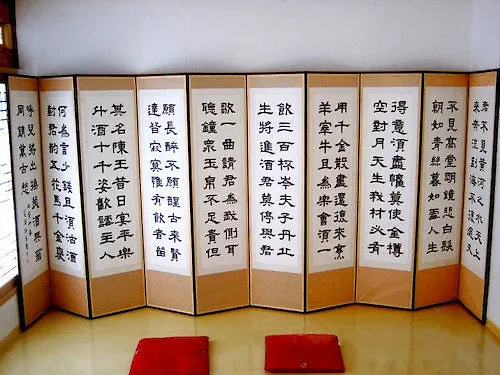 君不見黃河之水天上
來奔流到海不復又
不見高堂明鏡悲白髮
朝如青絲暮如雪人生
得意須盡歡莫使金樽
空對月天生我材必有
用千金散盡還復來烹
羊宰牛且為樂會須一
飲三百杯岑夫子丹丘
生將進酒君莫停與君
歌一曲請君為我側耳
聽鐘鼎玉帛不足貴但
願長醉不願醒古來賢
達皆寂寞惟有飲者留
其名陳王昔日宴平樂
斗酒十千恣歡謔主人
何為言少錢且須沽酒
對君酌五花馬千金裘
呼兒將出換美酒與爾
同銷萬古愁